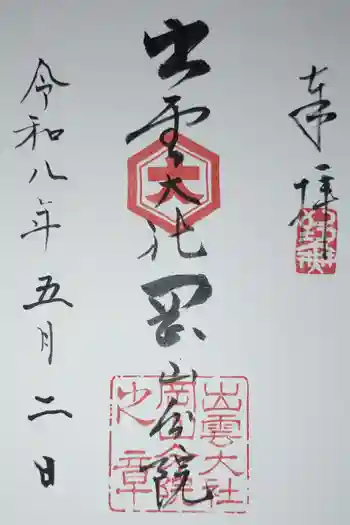 奉拝
出雲大社岡山分院
大
出雲大社
岡山分院
之章
令和八年五月二日